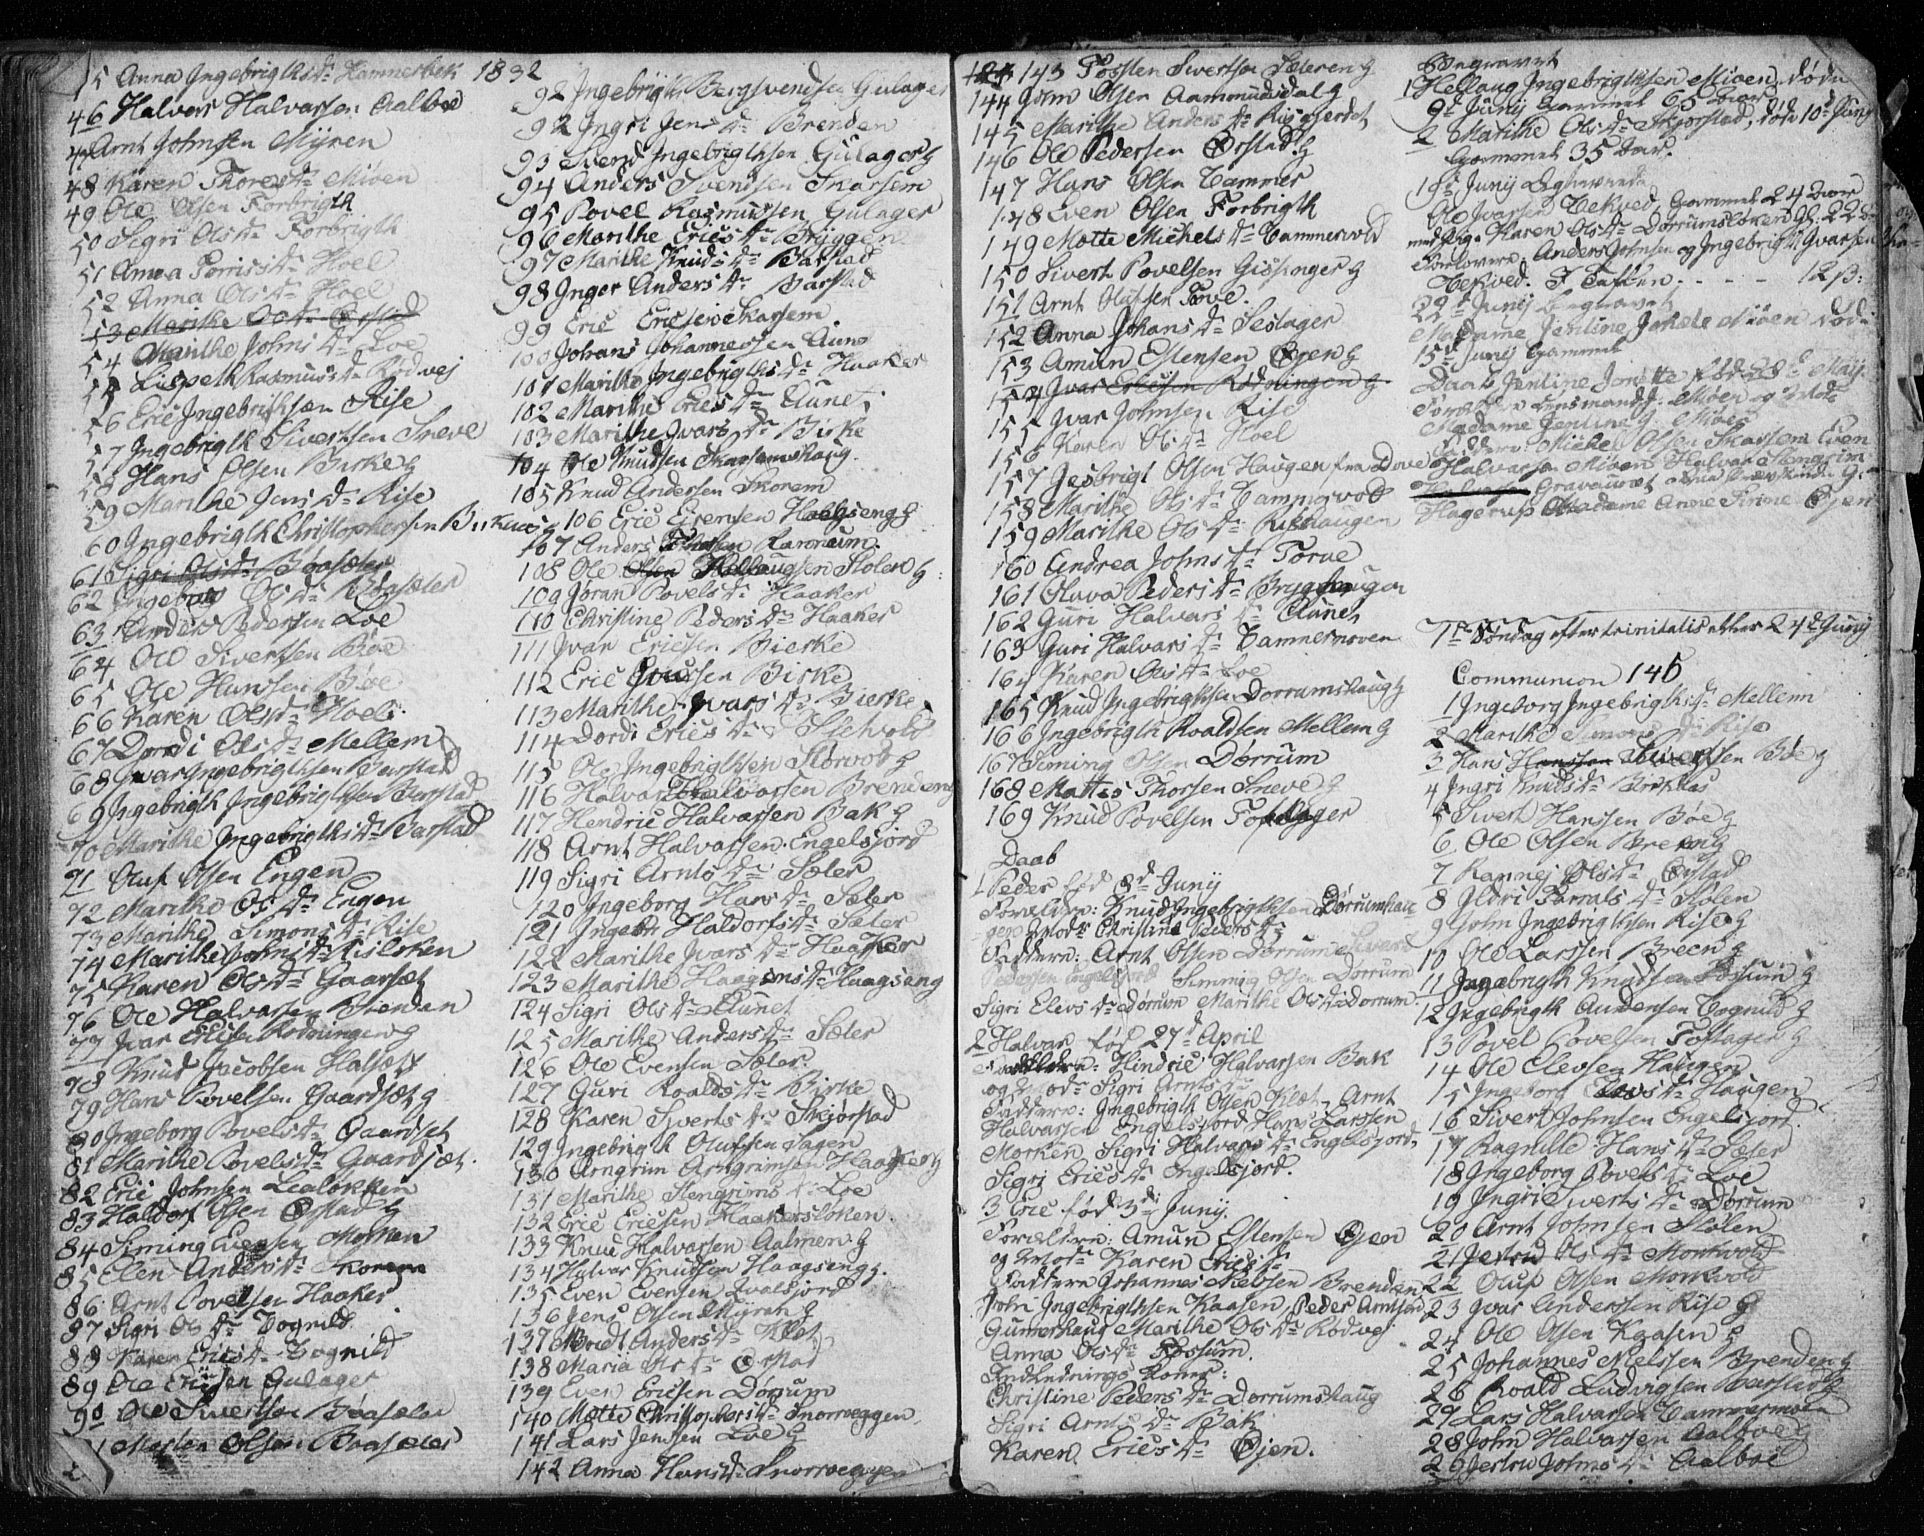 45 Anna Ingebrigths Dr Hammerbek
46 Halvor Halvarsen Aalboe
47 Arnt Johnsen Myren
48 Karen Thores Dr Mioen
49 Ole Olsen Forbrigth
50 Sigri Ols Dr Forbrigth
51 Anna Dr Hoel
52 Anna Ols Dr Hoel
53 Marithe Ørstad
54 Marithe Johns Dr Loe
55 Lispeth Rasmus Dr Rodvej
56 Eric Ingebrigthsen Rise
57 Ingebrigth Sivertsen Sneve
58 Hans Olsen Birke G
59 Marithe Jens Dr Rise
60 Ingebrigth Christophersen
61 Sigri Ols Dr Boasæter
62 Ingeborg Ols Dr Boasæter
63 Anders Pedersen Loe
64 Ole Sivertsen Bøe
65 Ole Hanssen Bøe
66 Karen Ols Dr Hoel
67 Dordi Ols Dr Mellem
68 Ivar Ingebrigthsen Barstad
69 Ingebrigth Ingebrigthsen Barstad
70 Marithe Ingebrigths Dr Barstad
71 Oluf Olsen Engen
72 Marithe Ols Dr Engen
73 Marithe Simons Dr Rise
74 Marithe Johns Dr Risloken
75 Karen Ols Dr Gaarset
76 Ole Halvarsen Brendan
77 Ivar Ericsen Rodningen G
78 Knud Jacobsen Halset
79 Hans Povelsen Gaardset G
80 Ingeborg Povels Dr Gaardset
81 Marithe Povels Dr Gaardset
82 Eric Johnsen Lealokken
83 Haldor Olsen Ørstad G
84 Siming Evensen Morken
85 Elen Anders Dr Skorem
86 Arnt Povelsen Haaker
87 Sigri Ols Dr Vognild
88 Karen Erics Dr Vognild
89 Ole Ericsen Gulager
90 Ole Sivertsen Boasæter
91 Morten Olsen Boasæter
1832
92 Ingebrigth Bergsvendsen Gulager
92 Ingri Jens Dr Brenden
93 Svend Ingebrigthsen Gulager G
94 Anders Svendsen Skarsem
95 Povel Rasmussen Gulager
96 Marithe Erics Dr Bryggen
97 Marithe Knuds Dr Barstad
98 Inger Anders Dr Barstad
99 Eric Ericsen Skarsem
100 Johans Johannessen Aune
101 Marithe Ingebrigths Dr Haaker
102 Marithe Erics Dr Aunet
103 Marithe Ivars Dr Birke
104 Ole Knudsen Skarsemshaug
105 Knud Andersen Skorem
106 Eric Haagseng G
107 Anders
108 Ole Olsen Stolen G
109 Joran Povels Dr Haaker
110 Christine Peders Dr Haaker
111 Ivar Ericsen Bierke
112 Eric Birke
113 Marithe Ivars Dr Bierke
114 Dordi Erics Dr
115 Ole Ingebrigthsen G
116 Halvar Halvarsen Brendeng
117 Hendric Halvarsen Bak G
118 Arnt Halvarsen Engelsjord
119 Sigri Arnts Dr Sæter
120 Ingeborg Hans Dr Sæter
121 Ingebr Haldors Dr Sæter
122 Marithe Ivars Dr Haaker
123 Marithe Haagens Dr Haagseng
124 Sigri Ols Dr Aunet
125 Marithe Anders Dr Sæter
126 Ole Evensen Sæter
127 Guri Roalds Dr Birke
128 Karen Siverts Dr Skjorstad
129 Ingebrigth Olufsen Hagen
130 Arngrim Arngrimsen Haagseng
131 Marithe Stengrims Dr Loe
132 Eric Ericsen Haakersloken
133 Knud Halvarsen Aalmen G
134 Halvar Knudsen Haagseng G
135 Even Evensen Qvalsjord
136 Jens Olsen Myran G
137 Anders Dr Klet
138 Maria Ols Dr Ørstad
139 Even Ericsen Dørrum
140 Mette Christophers Dr Snorroeggen
141 Lars Jenssen Loe G
142 Anna Hans Dr Snorroeggen
143 Torsten Sivertsen Sæteren G
144 John Olsen Aammudsdal G
145 Marithe Anders Dr
146 Ole Pedersen Ørstad G
147 Hans Olsen Vammer
148 Even Olsen Forbrigth
149 Mette Michels Dr Vammervold
150 Sivert Povelsen Gissinger G
151 Arnt Olufsen Tove
152 Anna Johans Dr Seslager
153 Amun Estensen Øjen G
154 Ivar Ericsen Rodningen G
155 Ivar Johnsen Rise
156 Karen Ols Dr Hoel
157 Jesbrigt Olsen Haugen fra Dovre
158 Marithe Ols Dr Vammervold
159 Marithe Ols Dr Rishaugen
160 Andrea Johns Dr Torve
161 Oluva Peders Dr Brygghaugen
162 Guri Halvars Dr Aunet
163 Guri Halvars Dr Vammermoen
164 Karen Ols Dr Loe
165 Knud Ingebrigthsen Dorrumshaug G
166 Ingebrigth Roaldsen Mellem G
167 Siming Olsen Dørrum
168 Mattes Thorsen Sneve G
169 Knud Povelsen
Daab
1 Peder fød 8d Juny
Forældre: Knud Ingebrigthsen Dørrumshau-
gen Modr Christine Peders Dr
Faddere: Arnt Olsen Dørrum Sivert
Pedersen Engelsjord Simming Olsen Dørrum
Sigri Elevs Dr Dørrum Marithe Ols Dr Dorrum
2 Halvar fød 27d April
Forældre: Hindric Halvarsen Bak
og Modr Sigri Arnts Dr
Faddere: Ingebrigth Olsen Klet, Arnt
Halvarsen Engelsjord Hans Larssen
Morken, Sigri Halvars Dr Engelsjord,
Sigri Erics Dr Engelsjord.
3 Eric fød 3d Juny
Forældre: Amun Estensen Øjen
og Modr Karen Erics Dr
Faddere Johannes Nielssen Brenden
John Ingebrigthsen Kaasen, Peder Arntsen
Gunnershaug Marithe Ols Dr Rodvej
Anna Ols Dr Fossum.
Indlednings Koner:
Christine Peders Dr Dorrumshaug
Sigri Arnts Dr Bak
Karen Erics Dr Øjen.
Begravet
1 Hellaug Ingebrigthsen Mioen, døde
9d Juny Gammel 65 Aar
2 Marithe Ols Dr Skjorstad, døde 10d Juny
Gammel 35 Aar.
18d Juny Ægteviede
Ole Ivarsen Vekved Gammel 24 Aar
med Pige Karen Ols Dr Dørrumsloken Gl: 22
Forlovere: Anders Johnsen og Ingebrigth Ivarsen
Vekved. I Taflen - - - - 12 ß:
22d Juny Begravet
Madame Jenline Mioen død
15d Juny Gammel
Daab Jenline Jonette fød 29d May
Forældre Lensmand Mioen og Modr
Madame Jenline Mioen
Faddere: Michel Olsen Skarsem Even
Halvarsen Mioen Halvar Stengrim
Hagerup Madame Anne Sirine Øjen
7de Søndag efter trinitatis etter 24d Juny
Communion 145
1 Ingeborg Ingebrigths Dr Mellem
2 Marithe Simons Dr Rise
3 Hans Hanssen Sivertsen Bøe G
4 Ingri Knuds Dr
5 Sivert Hanssen Bøe G
6 Ole Olsen
7 Rannej Ols Dr Ørstad
8 Ildri Dr Stølen
9 John Ingebrigthsen Rise G
10 Ole Larssen Breen G
11 Ingebrigth Knudsen Fossum G
12 Ingebrigth Audensen Vognild G
13 Povel Povelsen G
14 Ole Elevsen Haugen
15 Ingeborg Elevs Dr Haugen
16 Sivert Johnsen Engelsjord.
17 Ragnille Hans Dr Sæter
18 Ingeborg Povels Dr Loe
19 Ingri Siverts Dr Dørrum
20 Arnt Johnsen Stølen
21 Jertrud Ols Dr Morkvold
22 Oluf Olsen Morkvold
23 Ivar Anderssen Rise G
24 Ole Olsen Kaasen G
25 Johannes Nielssen Brenden G
26 Roald Ludvigsen Barstad G
27 Lars Halvarsen Vammermoen
28 John Halvarsen Aalboe G
29 Jertru Johns Dr Aalboe